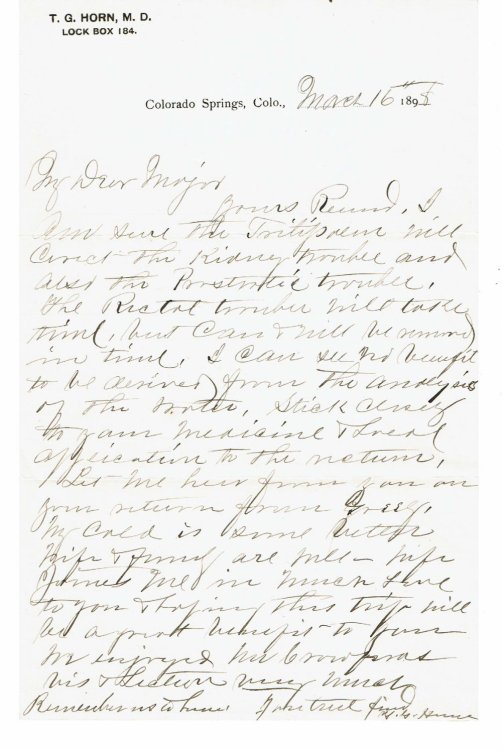 T. G. HORN, M. D.
LOCK BOX 184.
Colorado Springs, Colo., March 15th 1898
My Dear Major
Yours Recvd. I
am sure the Tritipalm will
Corect the Kidney trouble and
also the Prostratic trouble.
The Rectal trouble will take
time, but Can & will be removed
in time. I can see no benefit
to be derived from the analysis
of the water, Stick closely
to your Medicine & Local
application to the rectum.
Let me hear from you on
your return from
My Cold is some better
Wife & family are well – wife
Joines Me in much Love
to you & hoping this trip will
be a great benefit to you
We enjoyed Mr
vis & Lecture very much
Remember us to